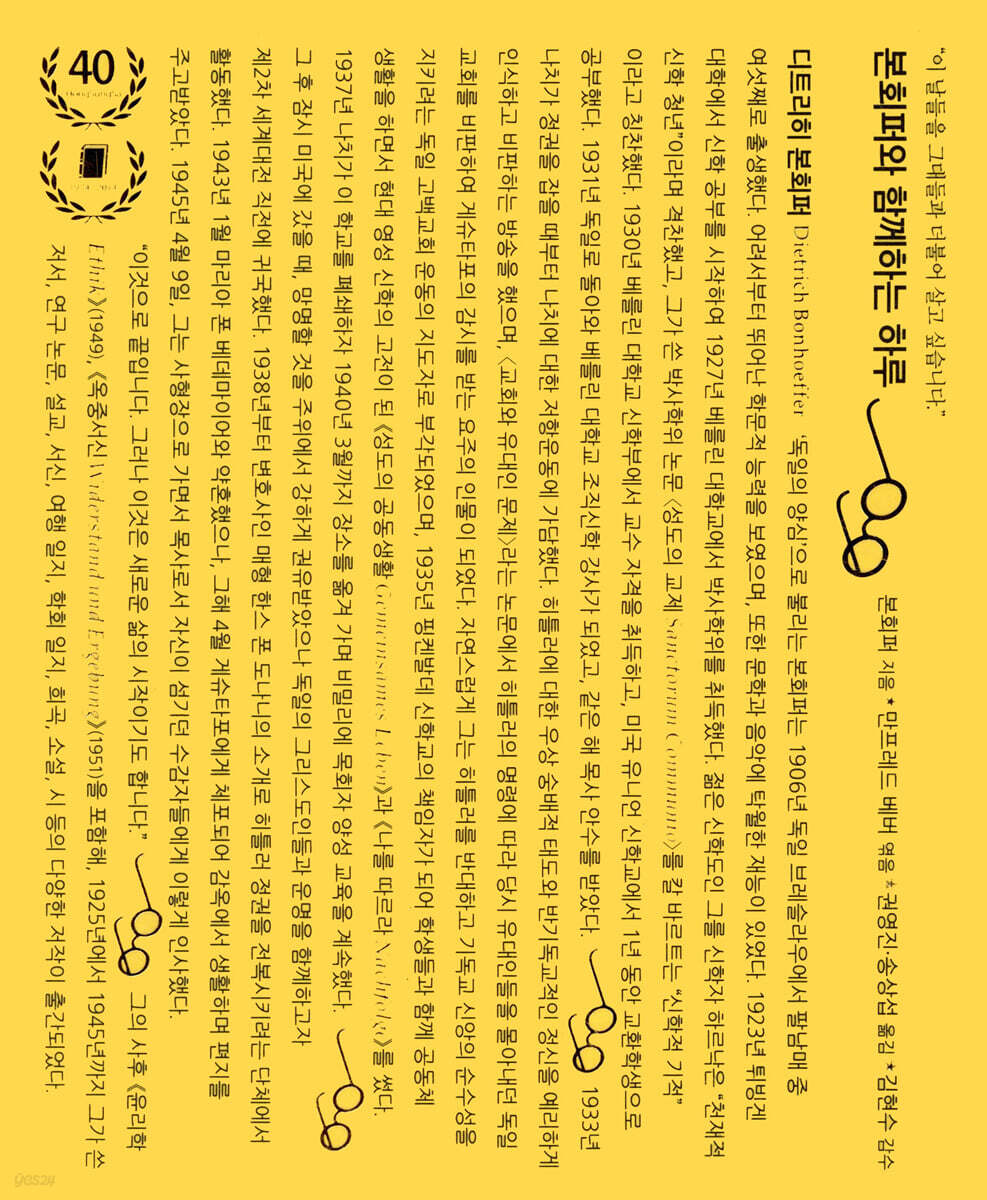 “이 날들을 그대들과 더불어 살고 싶습니다.”
본회퍼와 함께하는 하루
본회퍼 지음 * 만프레드 베버 엮음 * 권영진·송상섭 옮김 * 김현수 감수
디트리히 본회퍼 Dietrich Bonhoeffer ‘독일의 양심’으로 불리는 본회퍼는 1906년 독일 브레슬라우에서 팔남매 중
여섯째로 출생했다. 어려서부터 뛰어난 학문적 능력을 보였으며, 또한 문학과 음악에 탁월한 재능이 있었다. 1923년 튀빙겐
대학에서 신학 공부를 시작하여 1927년 베를린 대학교에서 박사학위를 취득했다. 젊은 신학도인 그를 신학자 하르낙은 “천재적
신학 청년”이라며 격찬했고, 그가 쓴 박사학위 논문 〈성도의 교제 Sanctorum Communio〉를 칼 바르트는 “신학적 기적”
이라고 칭찬했다. 1930년 베를린 대학교 신학부에서 교수 자격을 취득하고, 미국 유니언 신학교에서 1년 동안 교환학생으로
공부했다. 1931년 독일로 돌아와 베를린 대학교 조직신학 강사가 되었고, 같은 해 목사 안수를 받았다. 1933년
나치가 정권을 잡을 때부터 나치에 대한 저항운동에 가담했다. 히틀러에 대한 우상 숭배적 태도와 반기독교적인 정신을 예리하게
인식하고 비판하는 방송을 했으며, 〈교회와 유대인 문제〉라는 논문에서 히틀러의 명령에 따라 당시 유대인들을 몰아내던 독일
교회를 비판하여 게슈타포의 감시를 받는 요주의 인물이 되었다. 자연스럽게 그는 히틀러를 반대하고 기독교 신앙의 순수성을
지키려는 독일 고백교회 운동의 지도자로 부각되었으며, 1935년 핑켄발데 신학교의 책임자가 되어 학생들과 함께 공동체
생활을 하면서 현대 영성 신학의 고전이 된 《성도의 공동생활 Gemeinsames Leben》과 《나를 따르라 Nachfolge》를 썼다.
1937년 나치가 이 학교를 폐쇄하자 1940년 3월까지 장소를 옮겨 가며 비밀리에 목회자 양성 교육을 계속했다.
그 후 잠시 미국에 갔을 때, 망명할 것을 주위에서 강하게 권유받았으나 독일의 그리스도인들과 운명을 함께하고자
제2차 세계대전 직전에 귀국했다. 1938년부터 변호사인 매형 한스 폰 도나니의 소개로 히틀러 정권을 전복시키려는 단체에서
활동했다. 1943년 1월 마리아 폰 베데마이어와 약혼했으나, 그해 4월 게슈타포에게 체포되어 감옥에서 생활하며 편지를
주고받았다. 1945년 4월 9일, 그는 사형장으로 가면서 목사로서 자신이 섬기던 수감자들에게 이렇게 인사했다.
“이것으로 끝입니다. 그러나 이것은 새로운 삶의 시작이기도 합니다.” 그의 사후 《윤리학
Ethik》(1949), 《옥중서신 Widerstand und Ergebung》(1951)을 포함해, 1925년에서 1945년까지 그가 쓴
저서, 연구 논문, 설교, 서신, 여행 일지, 학회 일지, 희곡, 소설, 시 등의 다양한 저작이 출간되었다.
40
yes24